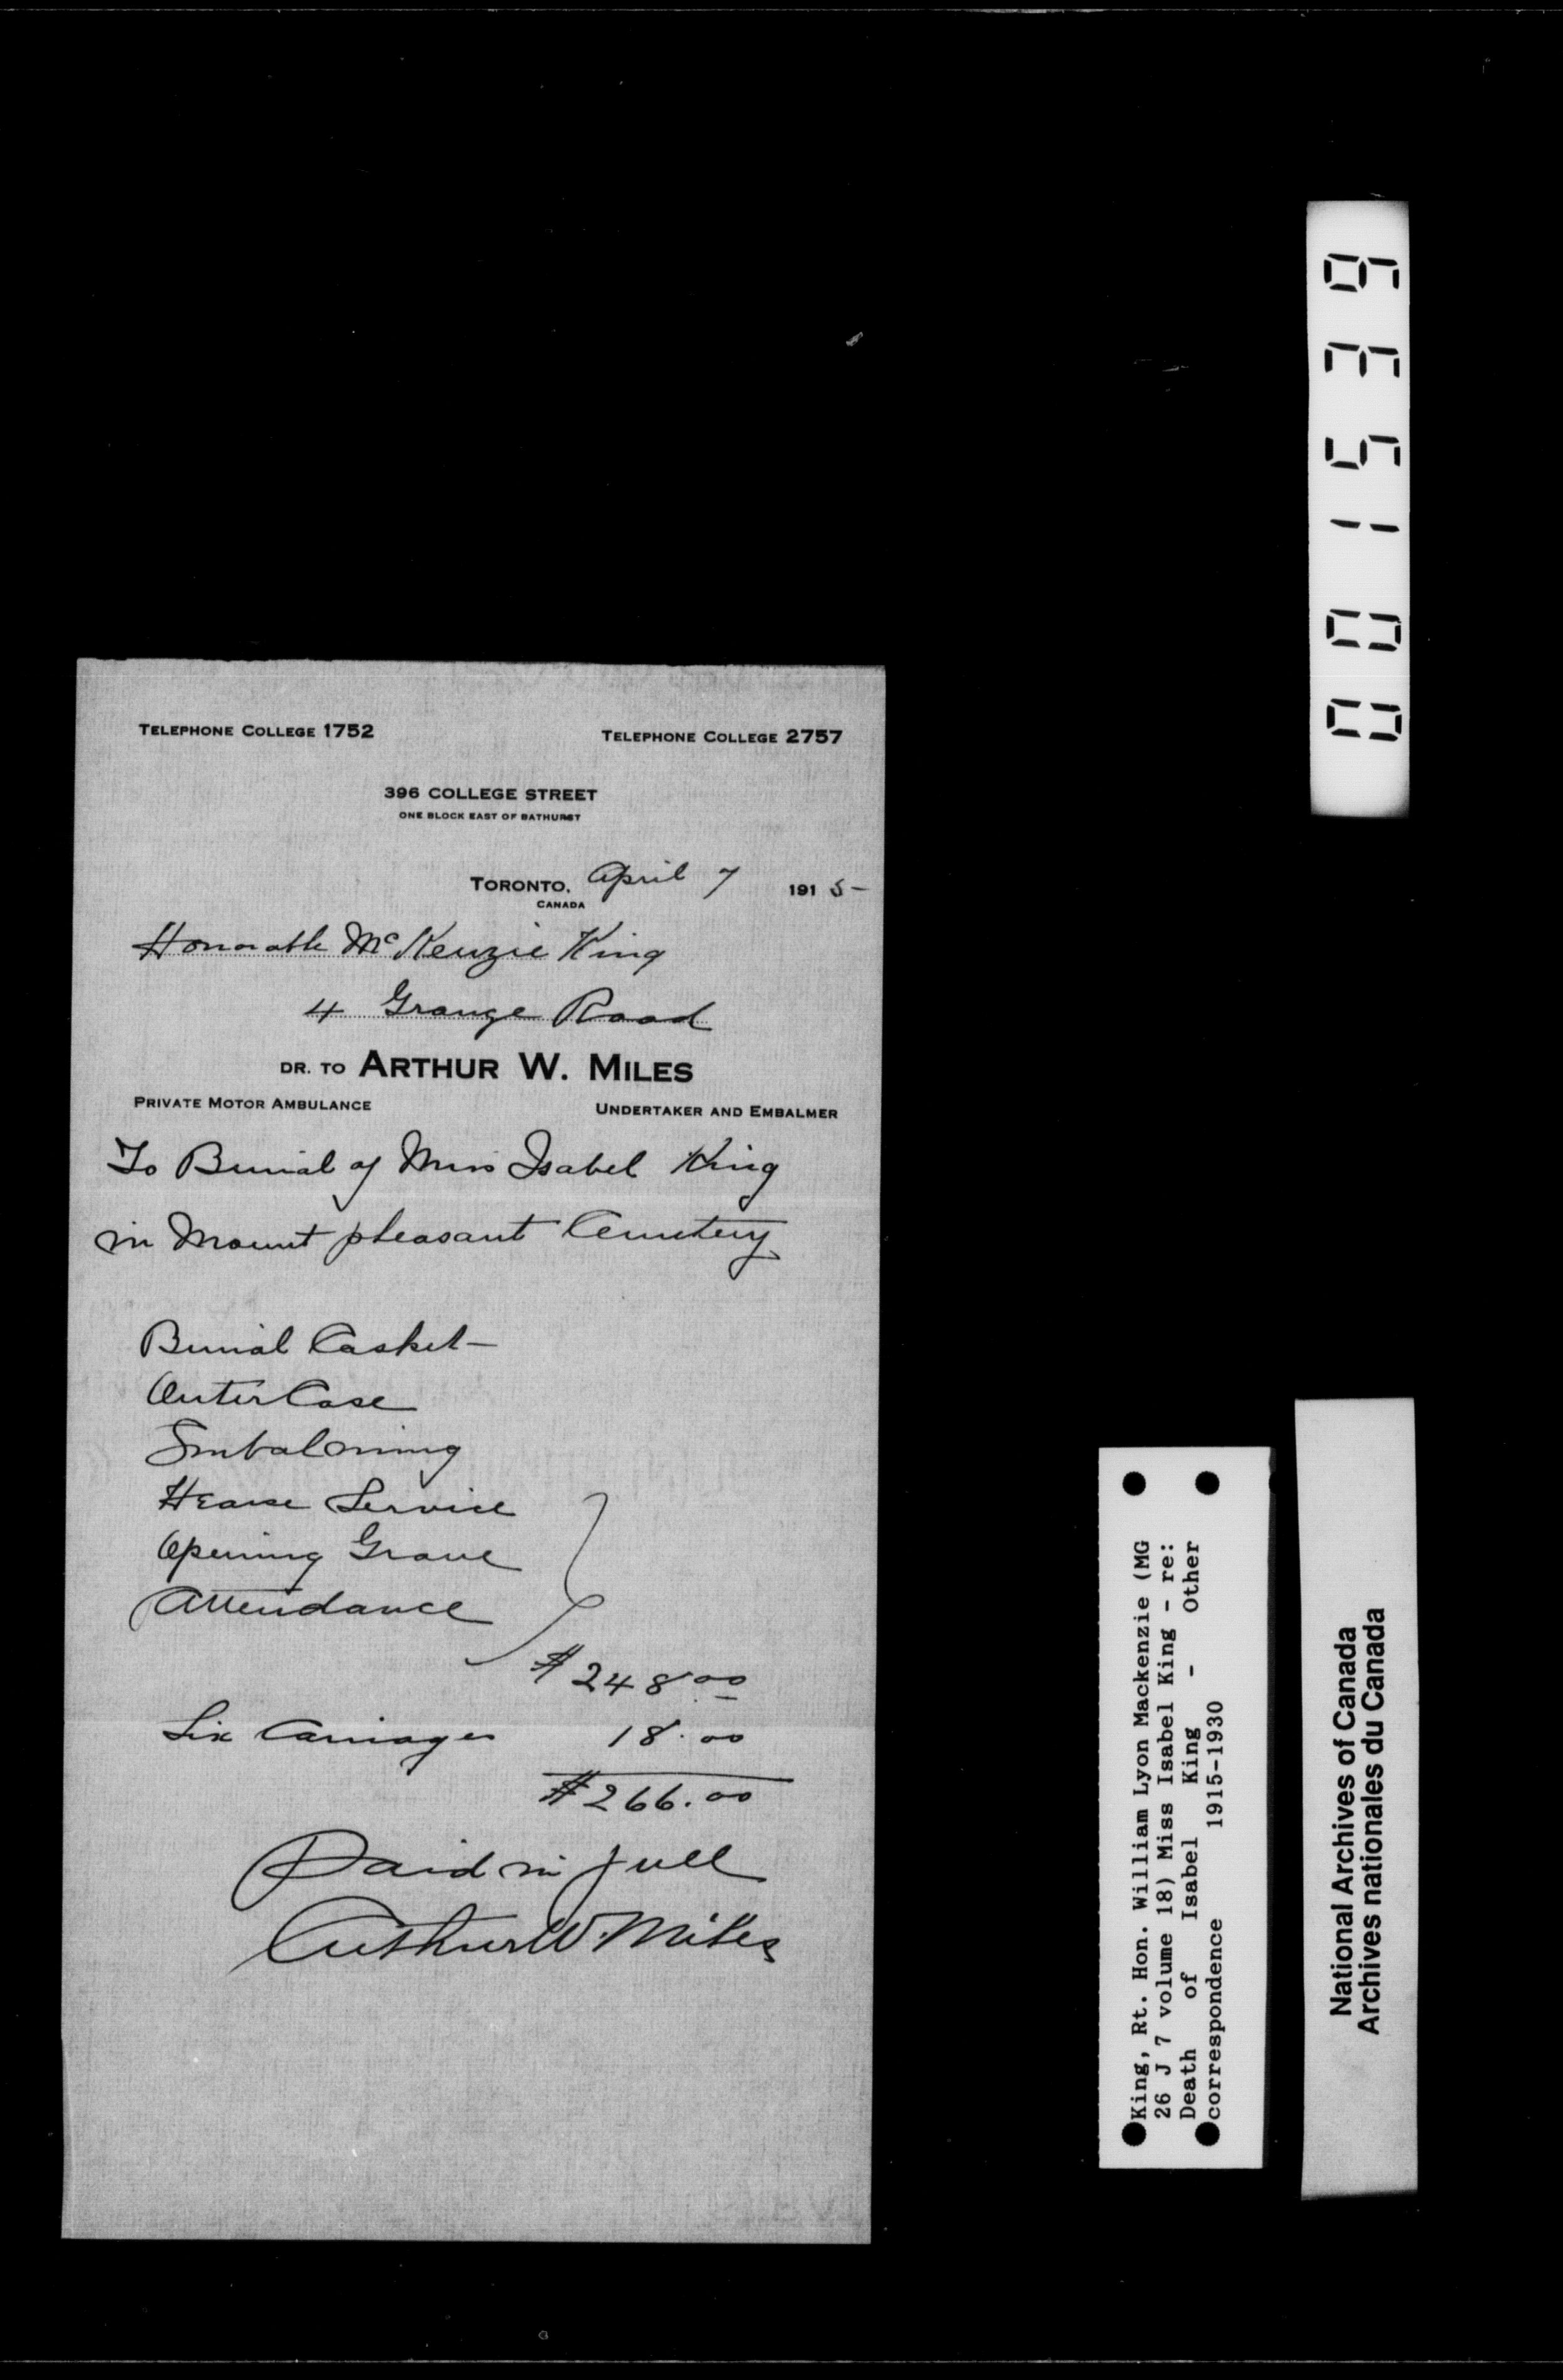 TELEPHONE COLLEGE 1752
TELEPHONE COLLEGE 2757
396 COLLEGE STREET
ONE BLOCK EAST OF BATHURST
TORONTO, April 7 1915-
CANADA
Honorable McKenzie King
4 Grange Road
DR. TO ARTHUR W. MILES
PRIVATE MOTOR AMBULANCE
UNDERTAKER AND EMBALMER
To Burial of Miss Isabel King
in Mount pleasant Cemetery
Burial Casket-
Outer Case
Embalming
Hearse Service
Opening Grave
Attendance
$248 00
Six Carriages 18.00
$266.00
Paid in full
Arthur W. Miles
001539
King, Rt. Hon. William Lyon Mackenzie (MG
26 J 7 volume 18) Miss Isabel King - re:
Death of Isabel King - Other
correspondence 1915-1930
National Archives of Canada
Archives nationales du Canada